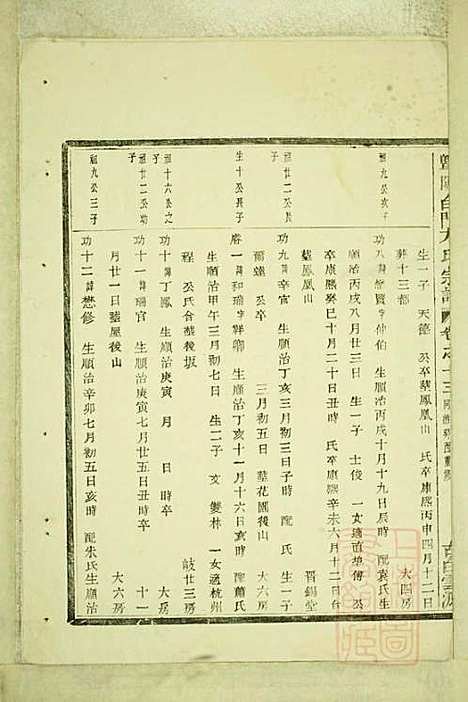 生一子 天德 公卒葬鳳凰山 氏卒康熙丙申四月十二日
葬十三都 大四房
祖九公次子
功八諱 字仲伯 生順治丙戌十月十九日辰時 配袁氏生
順治丙戌八月廿三日 生一子 士俊 一女適直埠傅 公
卒康熙癸巳十月二十日戌時 氏卒康熙辛未六月十二日合
葬鳳凰山 晉錫堂
祖廿二公長子
功九諱 生順治丁亥三月初三日子時 配 氏
爾達 公卒 三月初五日 葬花園後山 大六房
生十公長子
勝一諱和瑞字祥卿 生順治丁亥十一月十六日亥時 配蕭氏
生順治甲午三月初七日 生二子 文 雙林 一女適杭州
程 公氏合葬後坂 廿三房
祖十六公之子
功十諱丁鳳 生順治庚寅 月 日 時卒 大房
祖廿二公幼子
功十一諱瑞官 生順治庚寅七月廿五日丑時卒 十一
月廿一日葬屋後山 大六房
祖九公三子
功十二諱懋修 生順治辛卯七月初五日亥時 配朱氏生順治